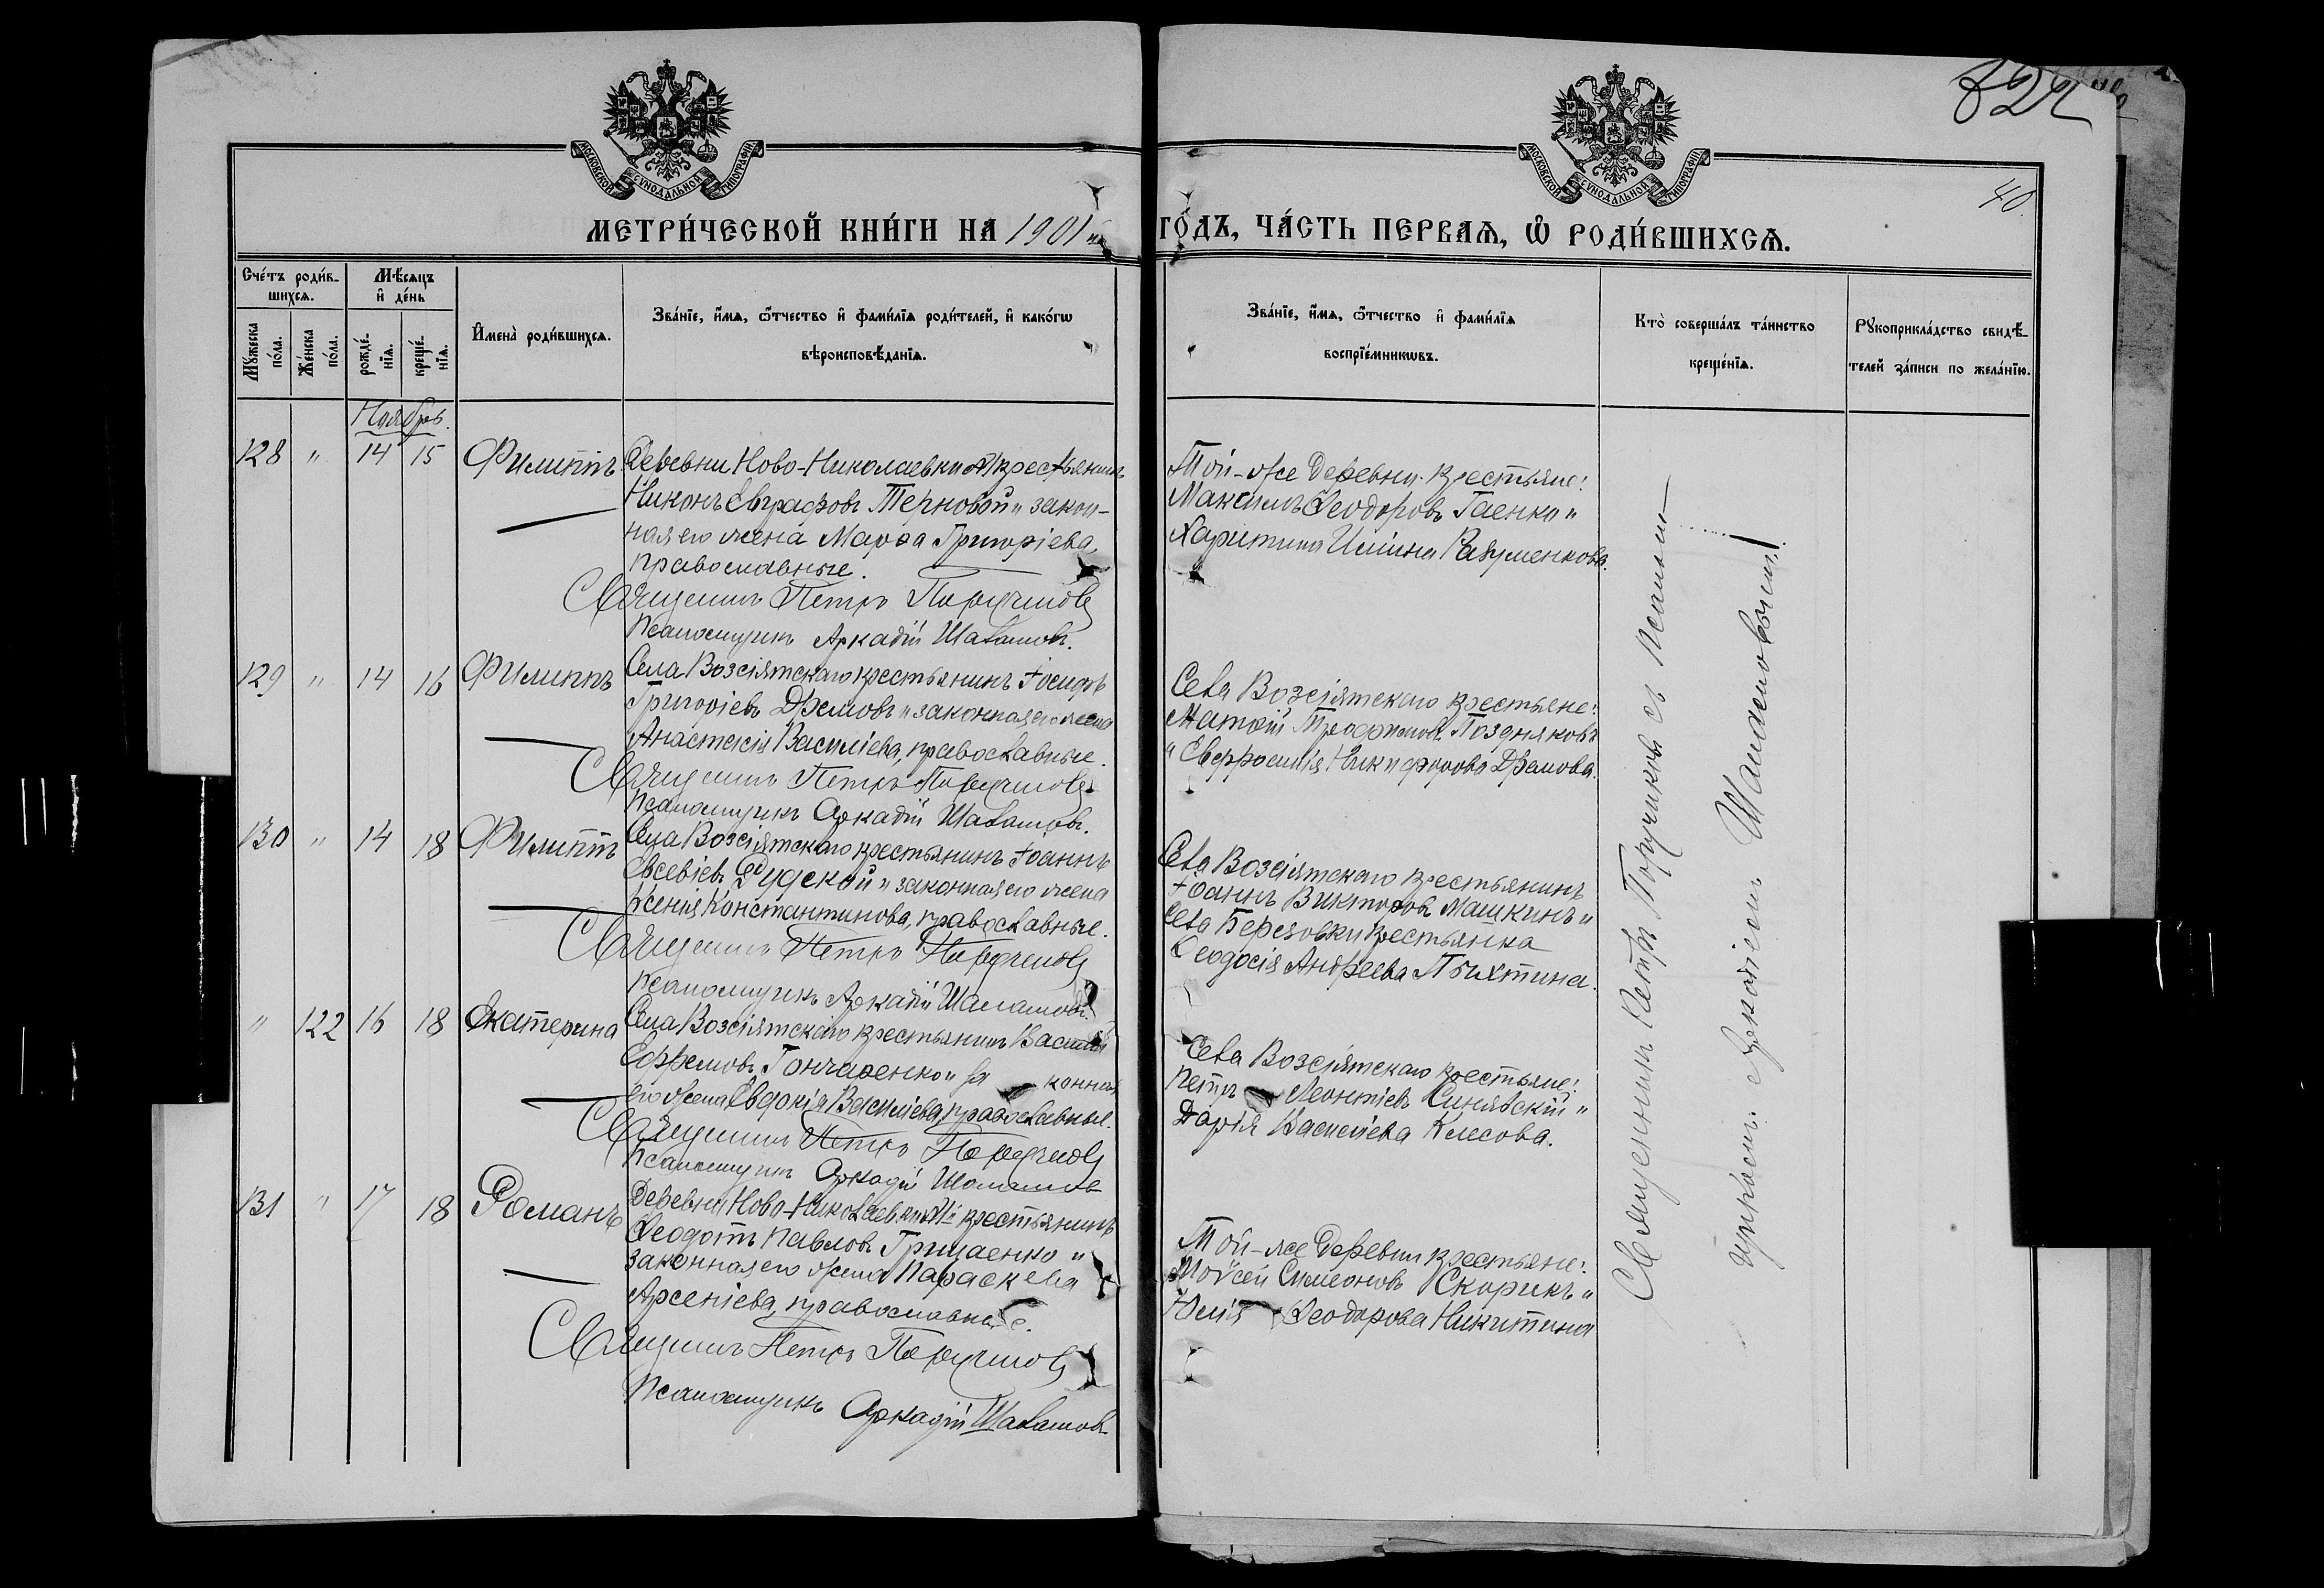 МОСКОВСКОЙ СѴНОДАЛЬНОЙ ТИПОГРАФІИ
МОСКОВСКОЙ СѴНОДАЛЬНОЙ ТИПОГРАФІИ
40.
МЕТРИ́ЧЕСКОЙ КНИ́ГИ НА 1901 й ГО́ДЪ, ЧА́СТЬ ПЕ́РВАѦ, Ѡ҆ РОДИ́ВШИХСѦ.
Сче́тъ роди́в-
шихсѧ.
Мѣ́сѧцъ
и҆ де́нь
Мꙋ́жеска по́ла.
Же́нска по́ла.
рожде́-
нїѧ.
креще́-
нїѧ.
И҆мена̀ роди́вшихсѧ.
Зва́нїе, и҆́мѧ, ѻ҆́тчество и҆ фами́лїѧ роди́телей, и҆ како́гѡ
вѣроисповѣ́данїѧ.
Зва́нїе, и҆́мѧ, ѻ҆́тчество и҆ фами́лїѧ
воспрїе́мникѡвъ.
Кто̀ соверша́лъ та́инство
креще́нїѧ.
Рꙋкоприкла́дство свидѣ́-
телей за́писи по жела́нїю.
Ноябрь.
128 " 14 15 Филиппъ Деревни Ново-Николаевки крестьянинъ
Никонъ Евграфовъ Терновой и закон-
ная его жена Марѳа Григоріева,
православные.
Священникъ Петръ Поручиковъ
Псаломщикъ Аркадій Шалашовъ.
Той-же деревни крестьяне:
Максимъ Ѳеодоровъ Гаенко и
Харитина Ильина Разуменкова.
129 " 14 16 Филиппъ Села Возсіятскаго крестьянинъ Іосифъ
Григоріевъ Дремовъ и законная его жена
Анастасія Василіева, православные.
Священникъ Петръ Поручиковъ
Псаломщикъ Аркадій Шалашовъ.
Села Возсіятскаго крестьяне:
Матѳій Трофимовъ Поздняковъ
и Евфросинія Никифорова Дремова.
130 " 14 18 Филиппъ Села Возсіятскаго крестьянинъ Іоаннъ
Евсевіевъ Дудской и законная его жена
Ксенія Константинова, православные.
Священникъ Петръ Поручиковъ
Псаломщикъ Аркадій Шалашовъ.
Села Возсіятскаго крестьянинъ
Іоаннъ Викторовъ Машкинъ и
села Березовки крестьянка
Ѳеодосія Андреева Пыхтина.
" 122 16 18 Екатерина Села Возсіятскаго крестьянинъ Василій
Ефремовъ Гончаренко и за конная
его жена Евдокія Василіева, православные.
Священникъ Петръ Поручиковъ
Псаломщикъ Аркадій Шалашовъ
Села Возсіятскаго крестьяне:
Петръ Леонтіевъ Синявскій и
Дарія Василіева Клесова.
131 " 17 18 Романъ Деревни Ново-Николаевки крестьянинъ
Ѳеодотъ Павловъ Грицаенко и
законная его жена Параскева
Арсеніева, православные.
Священникъ Петръ Поручиковъ
Псаломщикъ Аркадій Шалашовъ.
Той-же деревни крестьяне:
Моѵсей Симеоновъ Скорикъ и
Юлія Ѳеодорова Никитина
Священникъ Петръ Поручиковъ съ Псаломщикомъ Аркадіемъ Шалашовымъ.